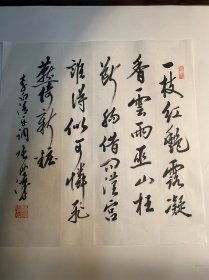 一枝红艳露凝
香云雨巫山枉
断肠借问汉宫
谁得似可怜飞
燕倚新妆
李白清平调